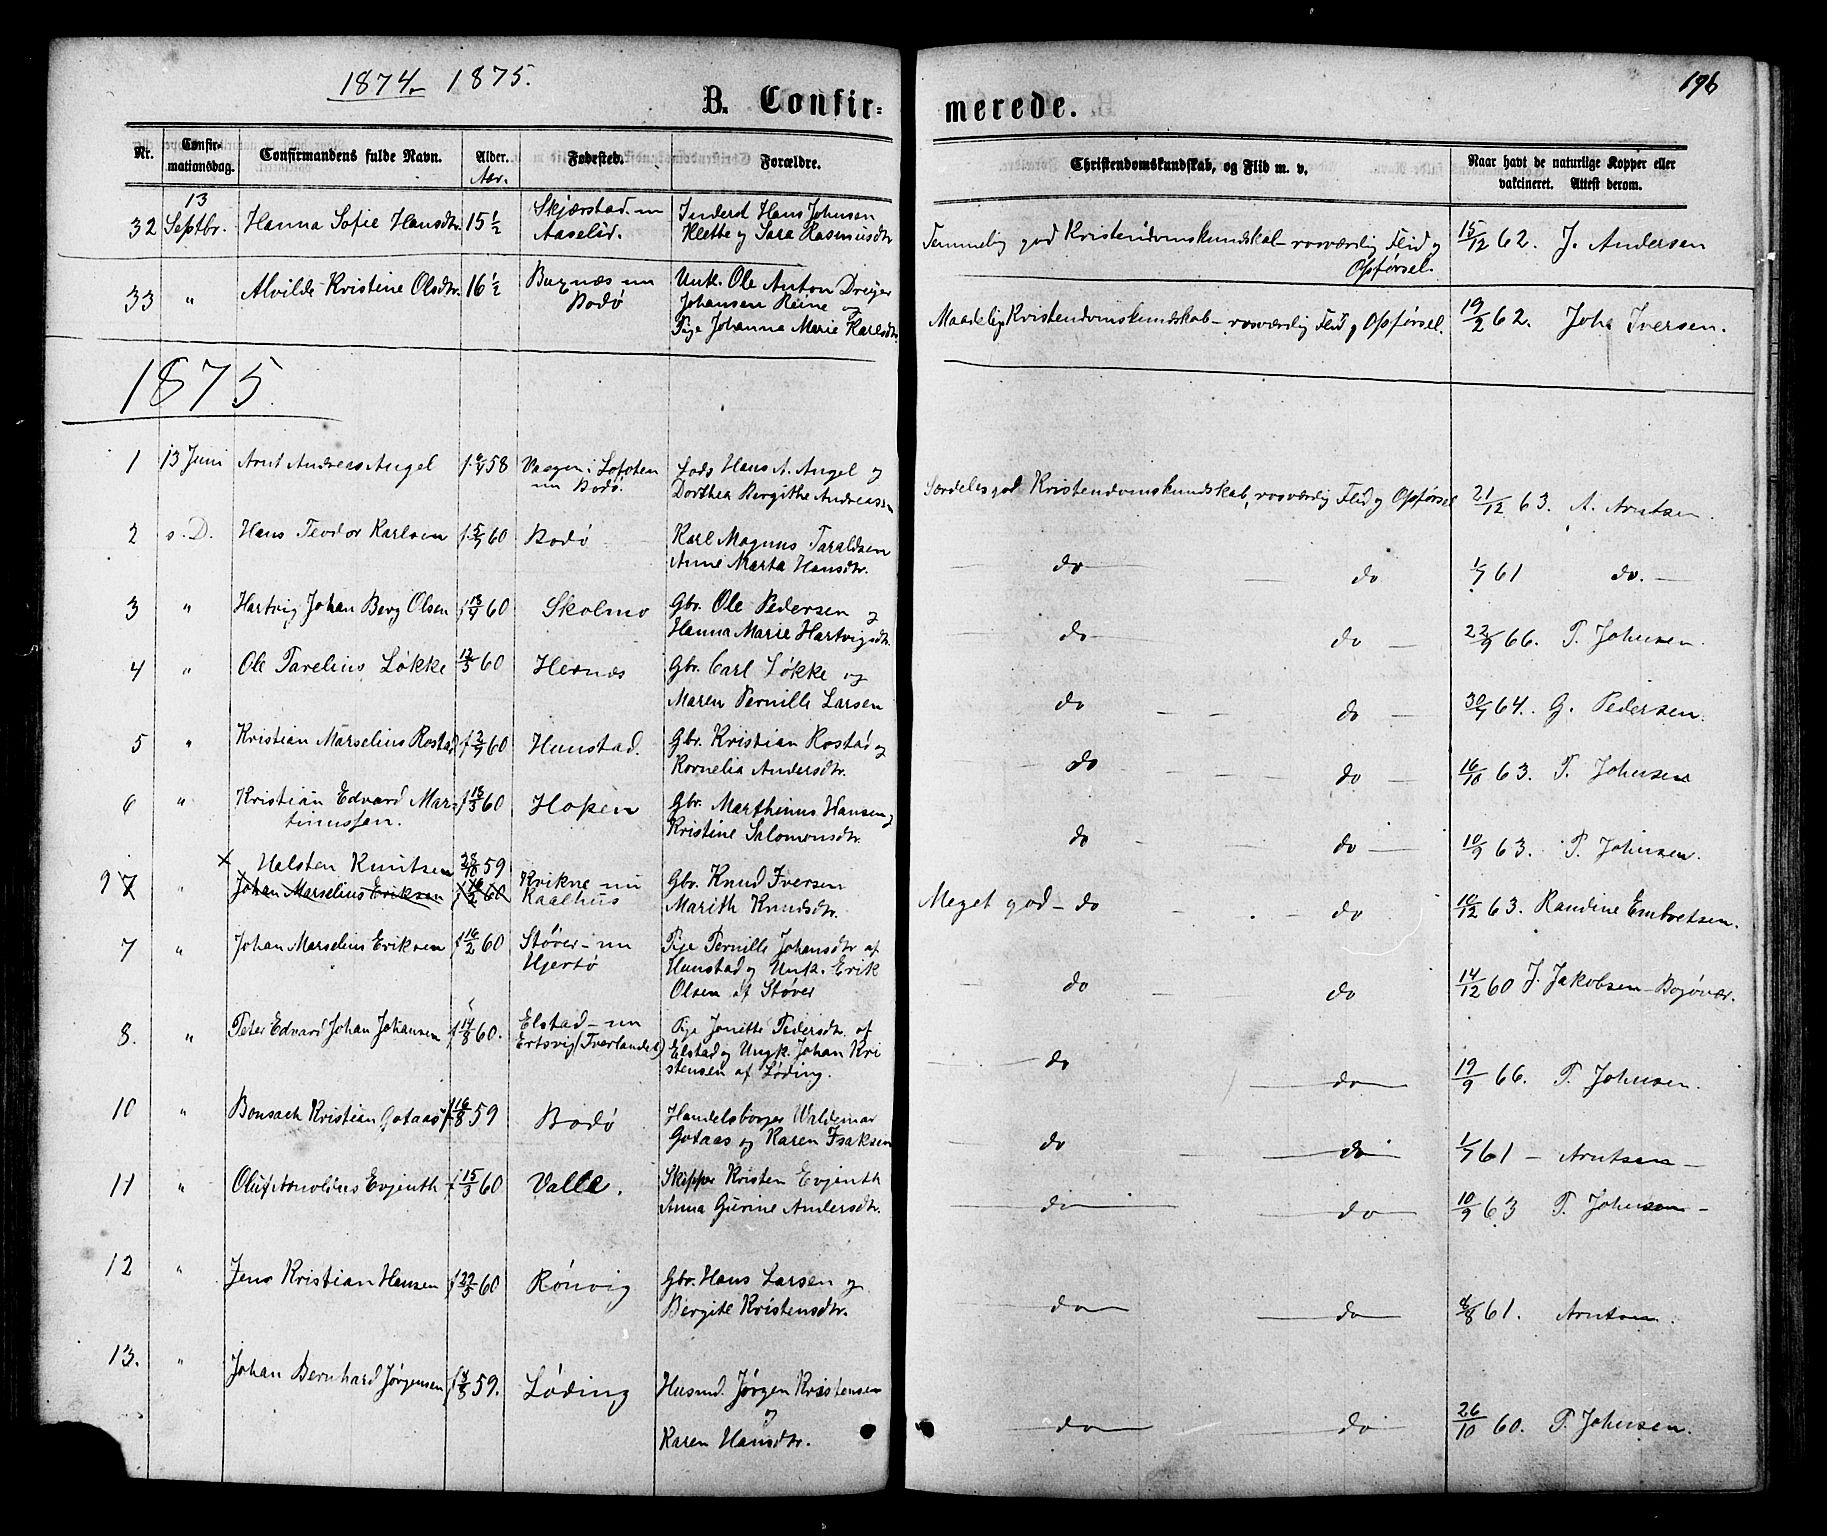 1874- 1875.
196
B. Confir-
merede.
Nr. Confirmationsdag. Confirmandens fulde Navn. Alder. Aar. Fødested. Forældre. Christendomskundskab, og Flid m. v. Naar havt de naturlige Kopper eller vakcineret. Attest derom.
13
32 Septbr. Hanna Sofie Hansdtr. 15 1/2 Skjærstad nu Inderst Hans Johnsen
Aaselid. Klette og Sara Rasmusdtr
Temmelig god Kristendomskundskab - rosværdig Flid og 15/12 62. J. Andersen
Opførsel.
33 " Alvilde Kristine Olsdtr. 16 1/2 Burnæs nu Unk. Ole Anton Dreyer
Bodø Johansen Reine og
Pige Johanna Marie Karlsdtr.
Maadelig Kristendomskundskab - rosværdig Flid og Opførsel. 19/2 62. Joh. Iversen.
1875.
1 13 Juni Arnt Andreas Angel f. 9/4 58 Vaagen i Lofoten Lods Hans A. Angel og
nu Bodø. Dorthea Bergithe Andreass
Særdeles god Kristendomskundskab, rosværdig Flid og Opførsel 21/12 63. A. Arntsen.
2 s. D. Hans Teodor Karlsen f. 5/7 60 Bodø Karl Magnus Taraldsen
Anne Marta Hansdtr.
do do 1/7 61 do. -
3 " Hartvig Johan Berg Olsen f 13/4 60 Skolmo Gbr. Ole Pedersen og
Hanna Marie Hartvigsdtr.
do do 22/9 66 P. Johnsen.
4 " Ole Parelius Løkke 12/3 60 Hernæs Gbr. Carl Løkke og
Maren Pernille Larsen
do do 30/7 64. G. Pedersen.
5 " Kristian Marselius Rostad f 2/7 60 Hunstad. Gbr. Kristian Rostad og
Kornelia Andersdtr.
do do 16/10 63. P. Johnsen
6 " Kristian Edvard Mar- f 18/3 60 Hopen Gbr. Marthinus Hansen og
tinussen. Kristine Salomonsdtr.
do do 10/9 63. P. Johnsen.
x Halsten Knutsen 28/10 59
9 7 " Johan Marselius Eriksen f 16/2 60 Kvikne nu Gbr. Knud Iversen
Kaalhus Marith Knudsdtr.
Meget god - do do 10/12 63. Randine Embretsen.
7 " Johan Marselius Eriksen f 16/2 60 Støver - nu Pige Pernille Johansdtr af
Hjertø Hunstad og Unk. Erik
Olsen af Støver
do do 14/12 60 J. Jakobsen - Bogøvær.
8. " Peter Edvard Johan Johansen f 14/8 60. Elstad - nu Pige Jonette Pedersdtr. af
Ertsvig (Tverlandet) Elstad og Ungk. Johan Kri
stensen af Løding.
do do 19/9 66. P. Johnsen.
10 " Bonsach Kristian Gotaas f 16/8 59 Bodø Handelsborger Waldemar
Gotaas og Karen Isaksen
do do 1/7 61 - Arntsen -
11 " Oluf Arnolius Evjenth f 15/3 60 Valle. Skipper Kristen Evjenth
Anna Gurine Andersdtr.
do do 10/9 63 P. Johnsen -
12 " Jens Kristian Hansen f 22/5 60 Rønvig Gbr. Hans Larsen og
Bergite Kristensdtr.
do do 4/8 61. Arntsen.
13. " Johan Bernhard Jørgensen f 4/8 59. Løding Husmd. Jørgen Kristensen
og
Karen Hansdtr.
do do 26/10 60. P. Johnsen.